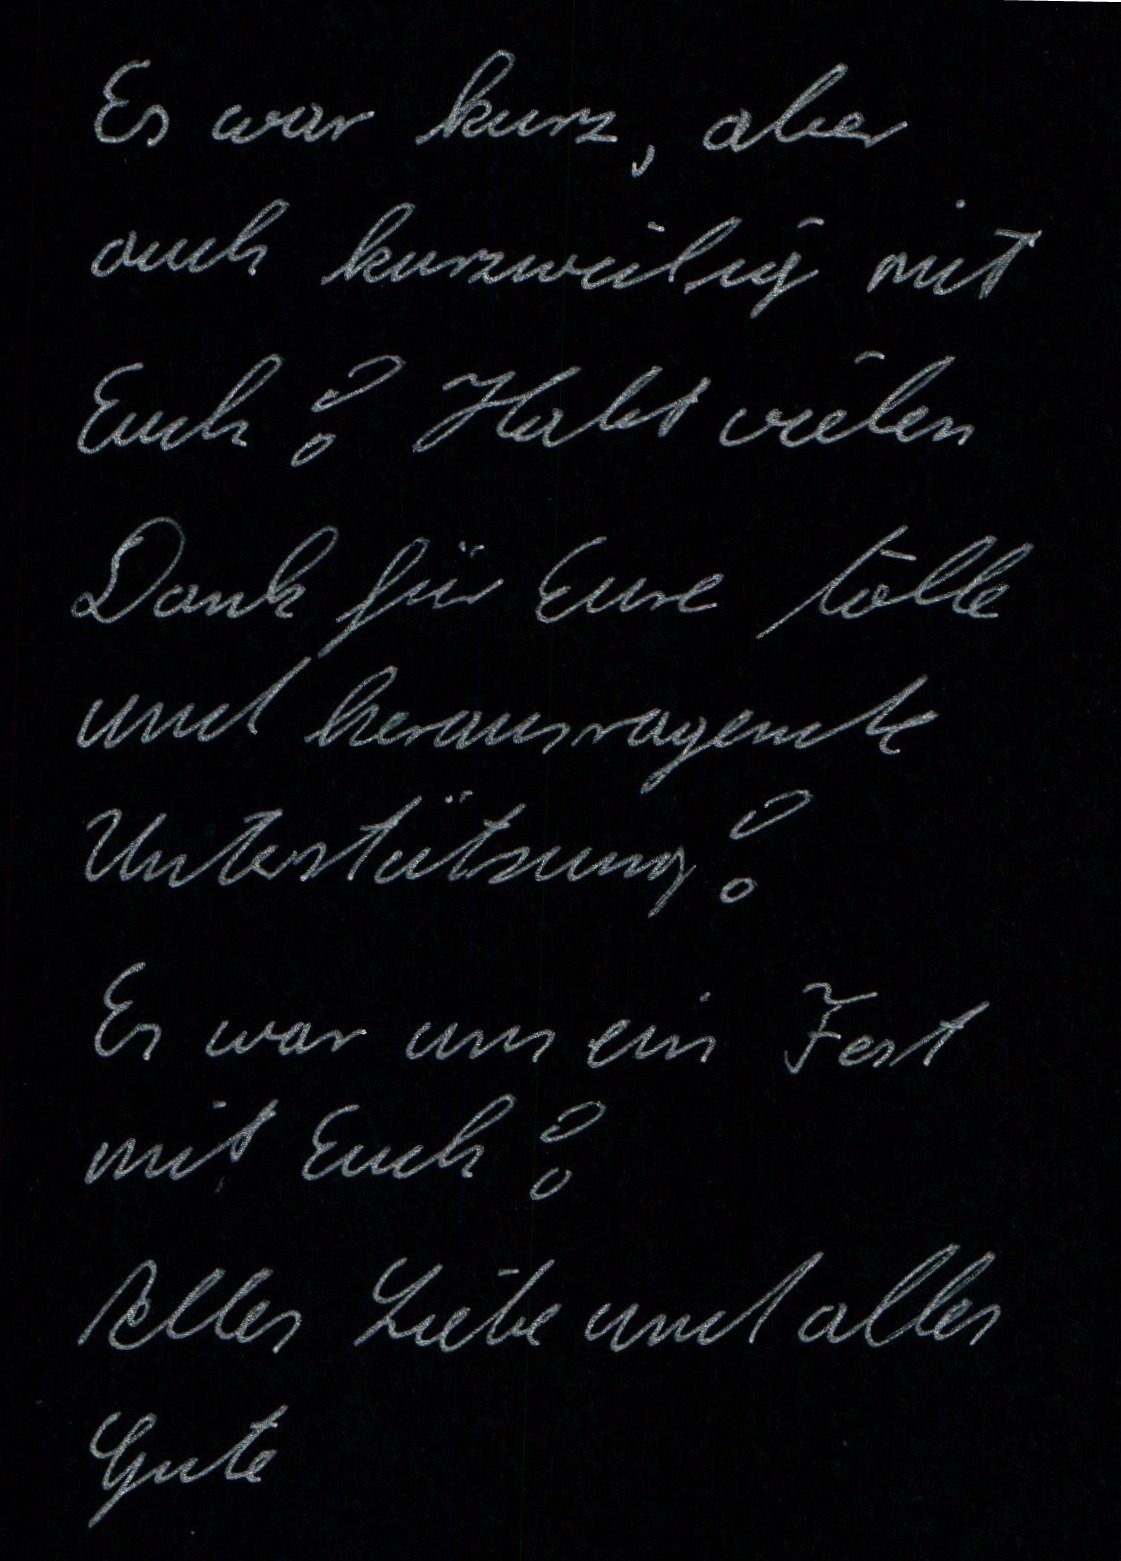 Es war kurz, aber
auch kurzweilig mit
Euch! Habt vielen
Dank für Eure tolle
und herausragende
Unterstützung!
Es war uns ein Fest
mit Euch!
Alles Liebe und alles
Gute